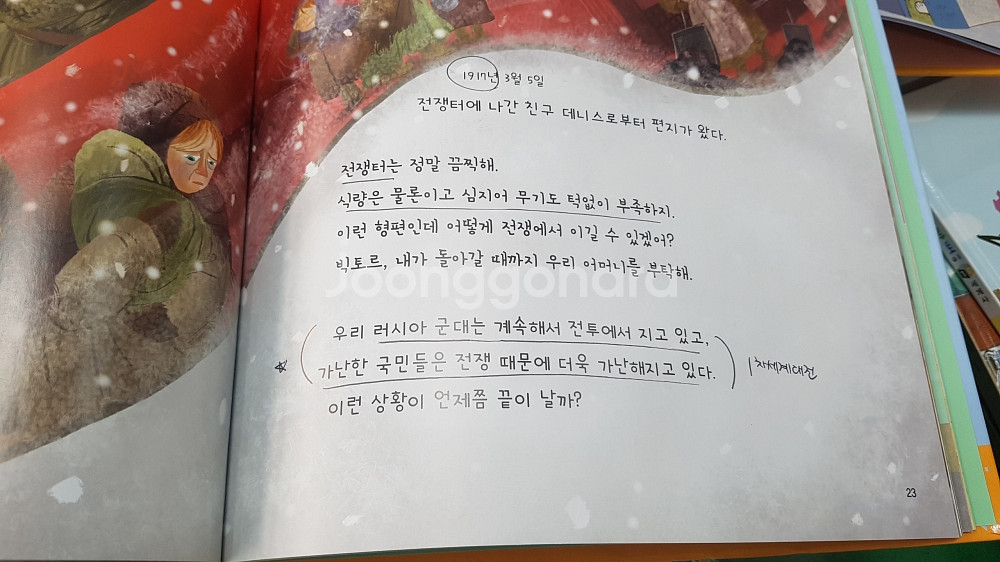 1917년 3월 5일
전쟁터에 나간 친구 데니스로부터 편지가 왔다.
전쟁터는 정말 끔찍해.
식량은 물론이고 심지어 무기도 턱없이 부족하지.
이런 형편인데 어떻게 전쟁에서 이길 수 있겠어?
빅토르, 내가 돌아갈 때까지 우리 어머니를 부탁해.
Joonggonara
우리 러시아 군대는 계속해서 전투에서 지고 있고,
가난한 국민들은 전쟁 때문에 더욱 가난해지고 있다.
1차세계대전
이런 상황이 언제쯤 끝이 날까?
23